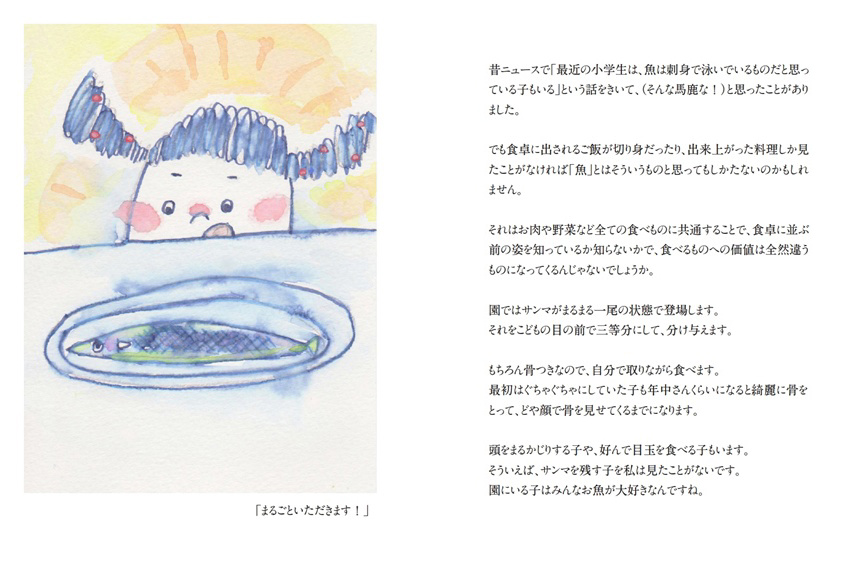 昔ニュースで「最近の小学生は、魚は刺身で泳いでいるものだと思っ
ている子もいる」という話をきいて、（そんな馬鹿な！）と思ったことがあり
ました。
でも食卓に出されるご飯が切り身だったり、出来上がった料理しか見
たことがなければ「魚」とはそういうものと思ってもしかたないのかもしれ
ません。
それはお肉や野菜など全ての食べものに共通することで、食卓に並ぶ
前の姿を知っているか知らないかで、食べるものへの価値は全然違う
ものになってくるんじゃないでしょうか。
園ではサンマがまるまる一尾の状態で登場します。
それをこどもの目の前で三等分にして、分け与えます。
もちろん骨つきなので、自分で取りながら食べます。
最初はぐちゃぐちゃにしていた子も年中さんくらいになると綺麗に骨を
とって、どや顔で骨を見せてくるまでになります。
頭をまるかじりする子や、好んで目玉を食べる子もいます。
そういえば、サンマを残す子を私は見たことがないです。
園にいる子はみんなお魚が大好きなんですね。
「まるごといただきます！」